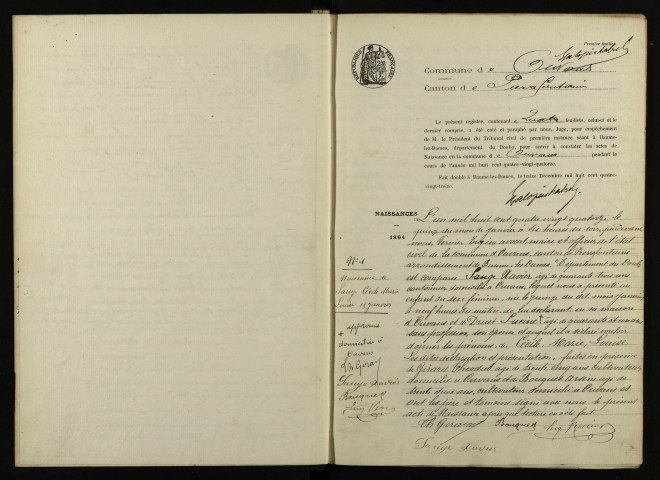 Premier feuillet
Commune d e Ouvans
Canton d e Pierrefontaine
Le présent registre, contenant quatre feuillets, celui-ci et le
dernier compris, a été coté et paraphé par nous, Juge, pour empêchement
de M. le Président du Tribunal civil de première instance séant à Baume-
les-Dames, département du Doubs, pour servir à constater les actes de
Naissance de la commune d'Ouvans pendant le
cours de l'année mil huit cent quatre-vingt-quatorze.
Fait double à Baume-les-Dames, le treize Décembre mil huit cent quatre-
vingt-treize.
NAISSANCES
1894
N° 1
Naissance de
Sange Cécile Marie
Louise 15 Janvier
L'an mil huit cent quatre vingt quatorze le
quinze du mois de Janvier à heures du soir, par devant
nous, Vernier maire et officier de l'état
civil de la commune d'Ouvans, canton de Pierrefontaine
arrondissement de Baume les Dames, Département du Doubs
est comparu Sange Xavier âgé de quarante trois ans
cantonnier domicilié à Ouvans, lequel nous a présenté un
enfant du sexe féminin, né le quinze du dit mois Janvier
à neuf heures du matin, de lui déclarant en sa maison
d'Ouvans et de Lucine + âgée de quarante et un ans
sans profession, son épouse et auquel il a déclaré vouloir
donner les prénoms de Cécile, Marie, Louise
Les dites déclaration et présentation faites en présence
de Girard Théodule âgé de trente cinq ans cultivateur
domicilié à Ouvans et de Bouquet Arsène âgé de
trente deux ans, cultivateur domicilié à Ouvans et
ont les père et témoins signé avec nous le présent
acte de Naissance après que lecture en a été fait
+ approuvé
domiciliée à
Ouvans
Th Girard
Sange Xavier
Bouquet
Th Girard Bouquet Vernier
Sange Xavier